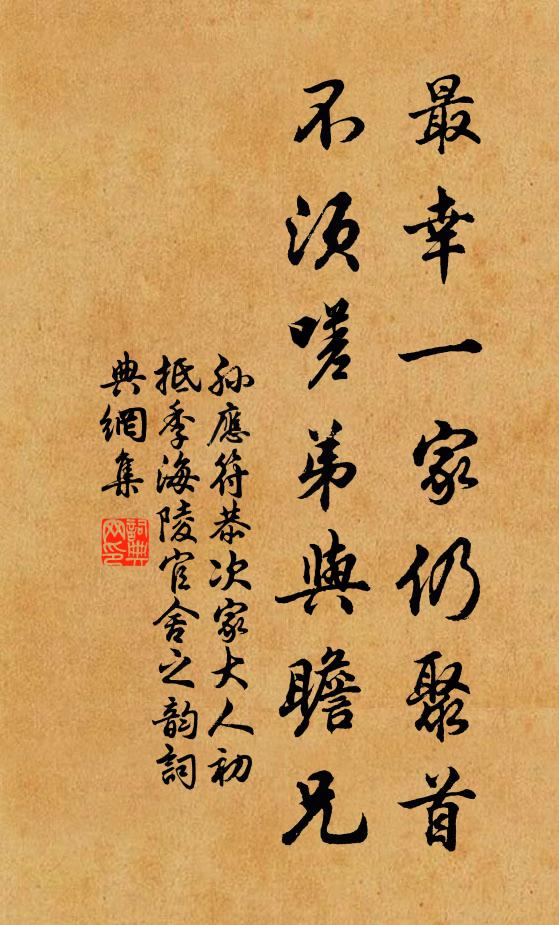 最幸一家仍聚首
不須嗟弟與瞻兄
孫應符恭次家大人初
抵季海陵官舍之韵詞
典網集
詞典网印